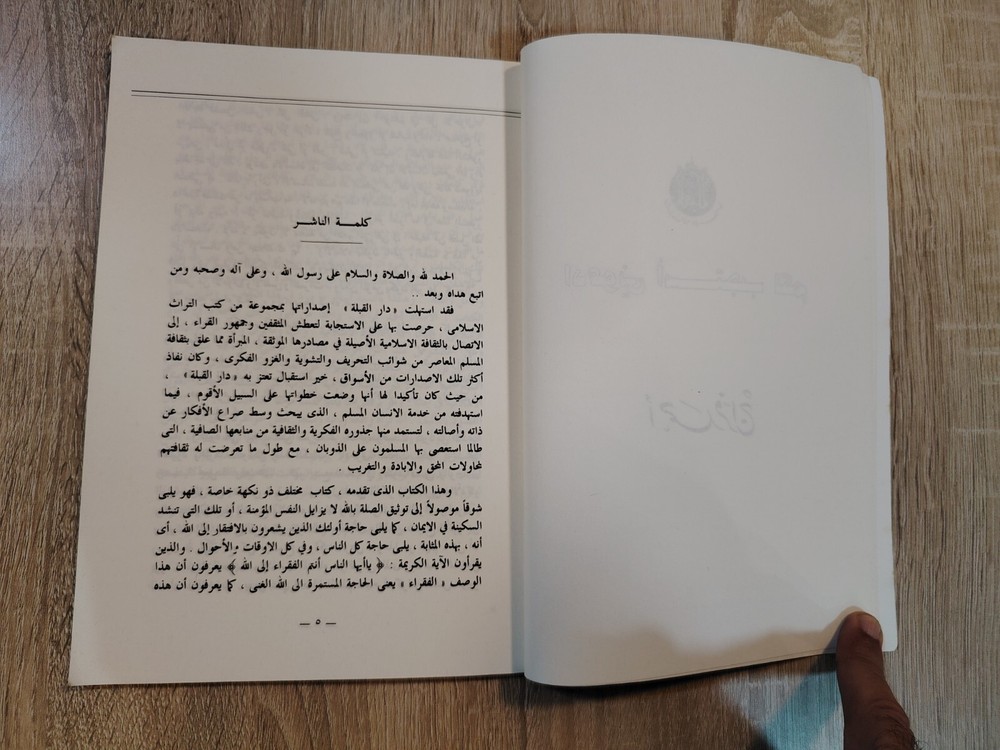 كلمـة الناشـر
الحمد لله والصلاة والسلام على رسول الله ، وعلى آله وصحبه ومن
اتبع هداه وبعد ..
فقد استهلت «دار القبلة» إصداراتها بمجموعة من كتب التراث
الاسلامى ، حرصت بها على الاستجابة لتعطش المثقفين وجمهور القراء ، إلى
الاتصال بالثقافة الاسلامية الأصيلة في مصادرها الموثقة ، المبرأة مما علق بثقافة
المسلم المعاصر من شوائب التحريف والتشوية والغزو الفكرى ، وكان نفاذ
أكثر تلك الاصدارات من الأسواق ، خير استقبال تعتز به «دار القبلة» ،
من حيث كان تأكيدا لها أنها وضعت خطواتها على السبيل الأقوم ، فيما
استهدفته من خدمة الانسان المسلم ، الذى يبحث وسط صراع الأفكار عن
ذاته وأصالته ، لتستمد منها جذوره الفكرية والثقافية من منابعها الصافية ، التى
طالما استعصى بها المسلمون على الذوبان ، مع طول ما تعرضت له ثقافتهم
لمحاولات المحق والابادة والتغريب .
وهذا الكتاب الذى تقدمه ، كتاب مختلف ذو نكهة خاصة ، فهو يلبى
شوقاً موصولاً إلى توثيق الصلة بالله لا يزايل النفس المؤمنة ، أو تلك التى تنشد
السكينة في الايمان ، كما يلبى حاجة أولئك الذين يشعرون بالافتقار إلى الله ، أى
أنه ، بهذه المثابة ، يلبى حاجة كل الناس ، وفي كل الاوقات والأحوال . والذين
يقرأون الآية الكريمة : ﴿ ياأيها الناس أنتم الفقراء إلى الله ﴾ يعرفون أن هذا
الوصف « الفقراء » يعنى الحاجة المستمرة الى الله الغنى ، كما يعرفون أن هذه
— ٥ —